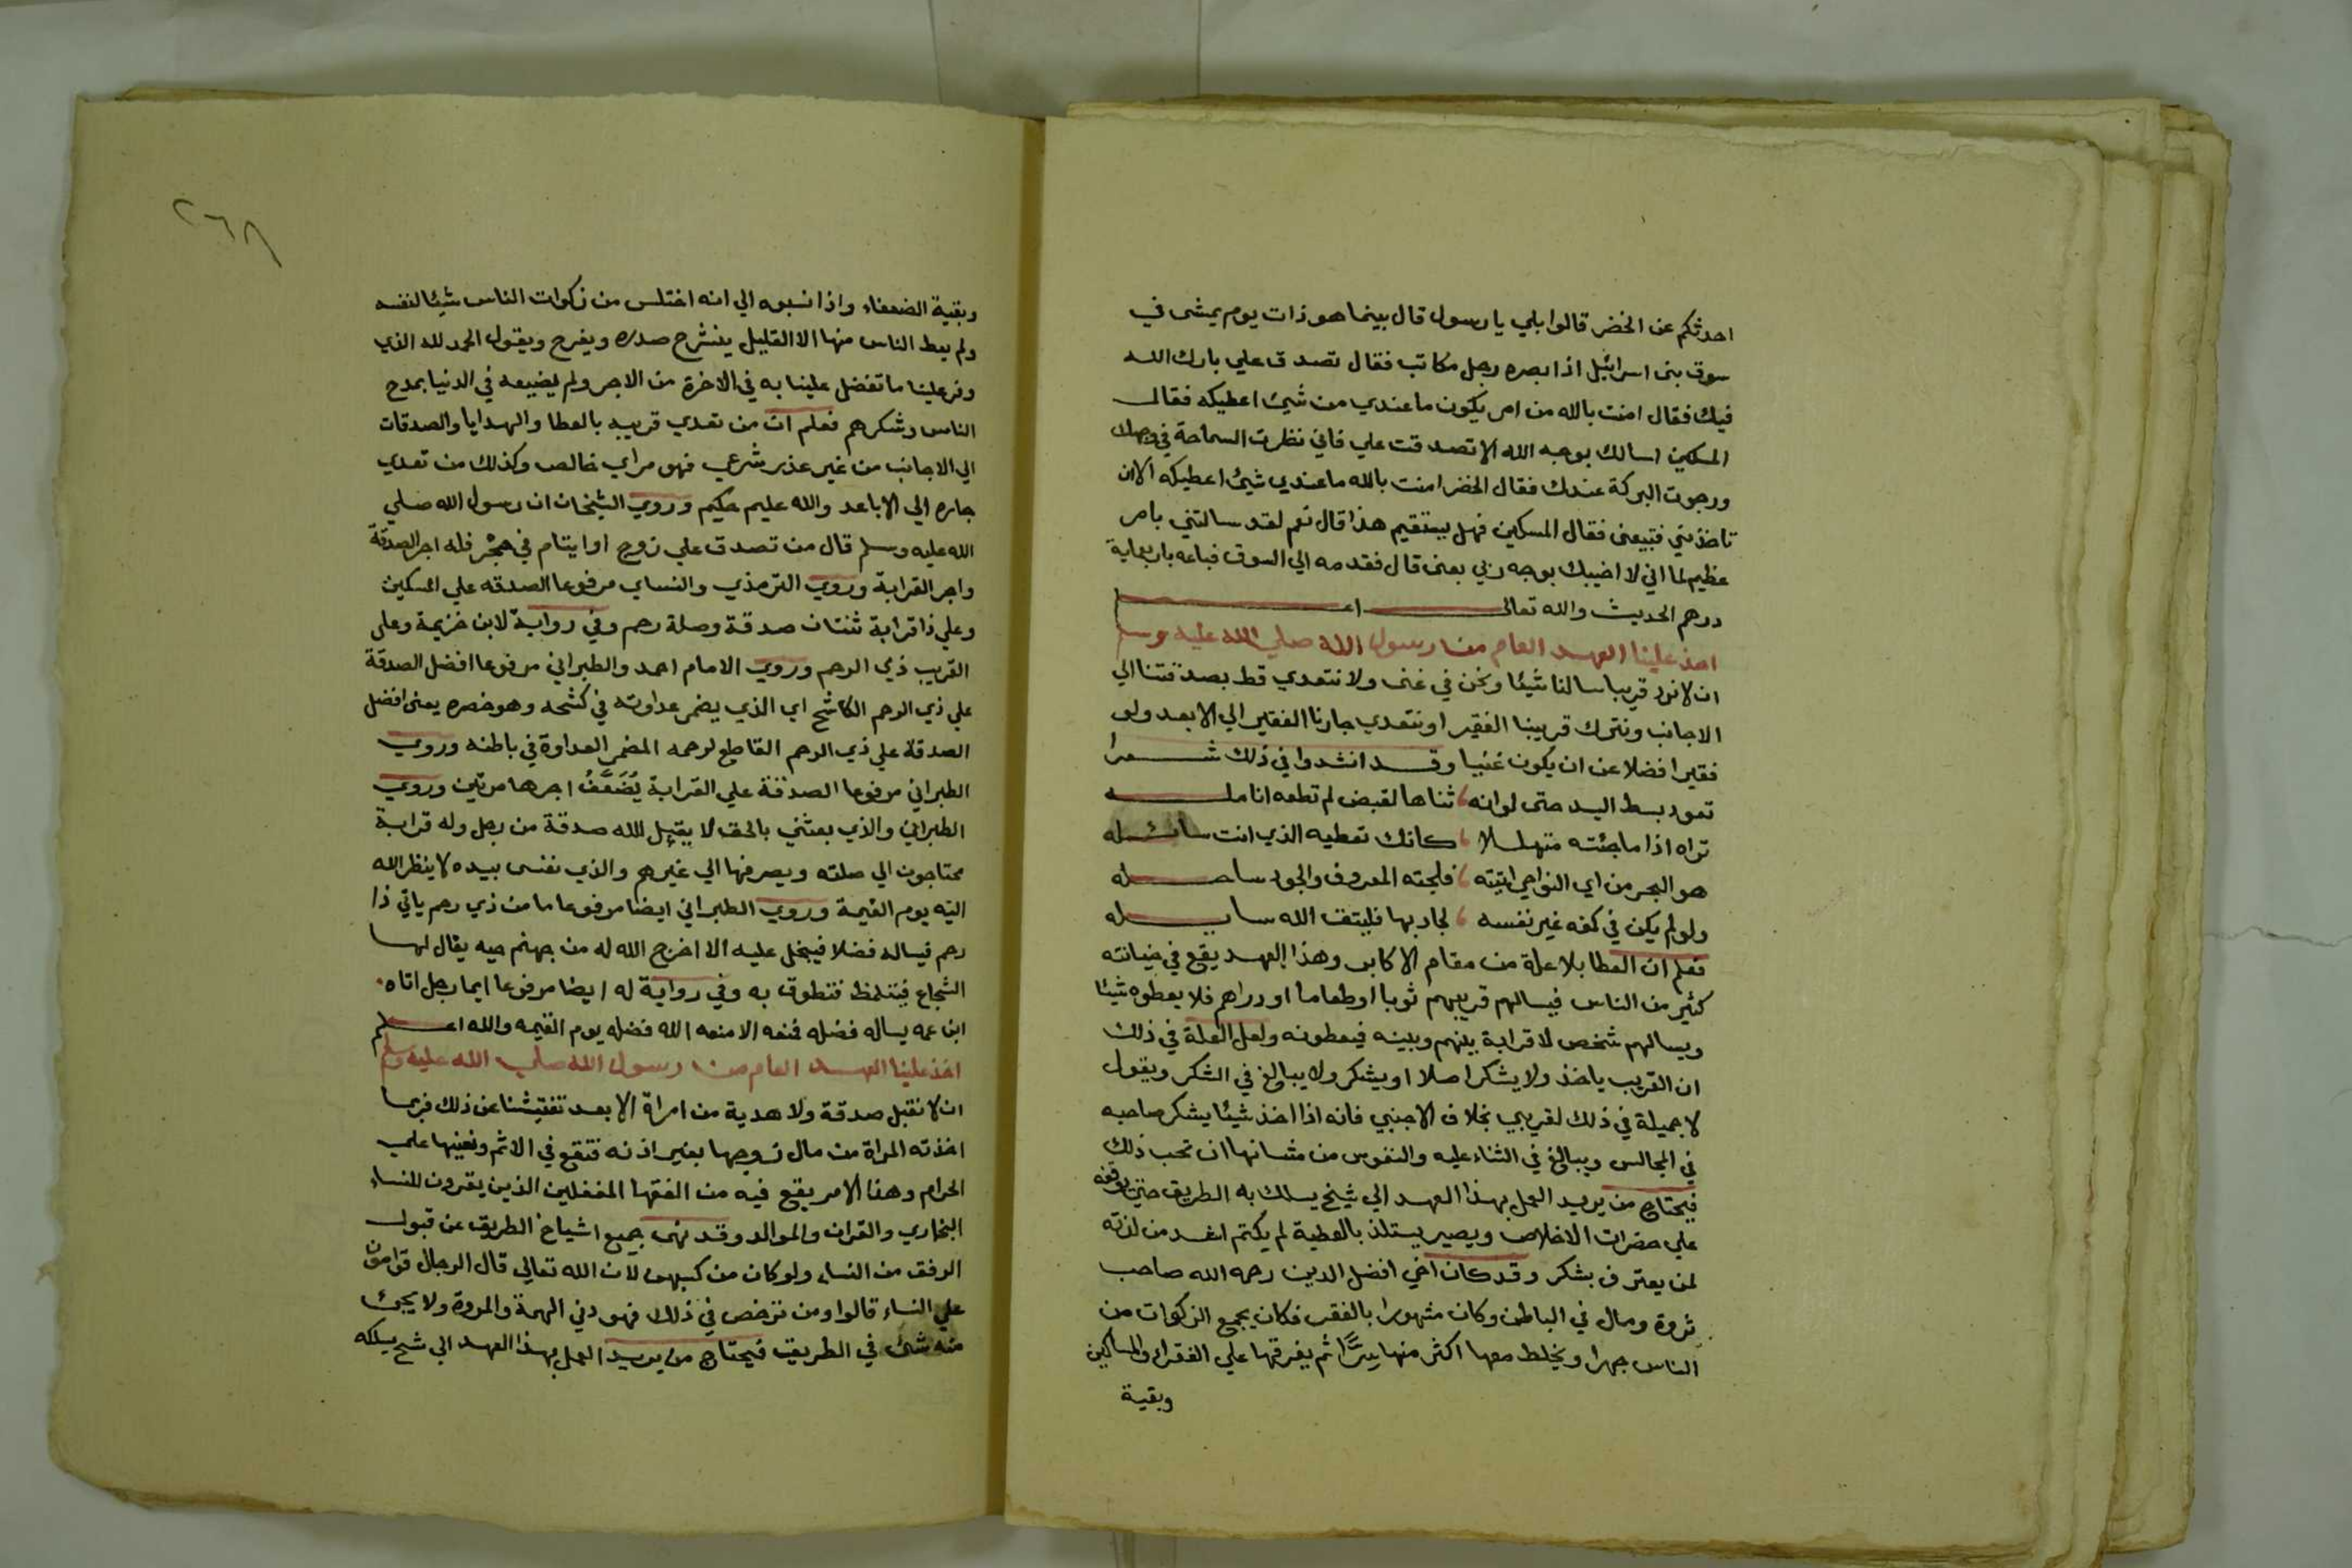 احدثكم عن الخضر قالوا بلي يا رسول قال بينما هو ذات يوم يمشى في
سوق بنى اسرائيل اذا بصره رجل مكاتب فقال تصدق علي بارك الله
فيك فقال امنت بالله من امر يكون ما عندي من شيئ اعطيكه فقال
المسكين اسالك بوجه الله الا تصدقت علي فاني نظرت السماحة في وجهك
ورجوت البركة عندك فقال الخضر امنت بالله ما عندي شيئ اعطيكه الا ان
تاخذني فتبيعنى فقال المسكين فهل يستقيم هذا قال نعم لقد سالتني بامر
عظيم لما اني لا اخيبك بوجه ربي بعنى قال فقدمه الي السوق فباعه باربعماية
درهم الحديث والله تعالى اعلم
اخذ علينا العهد العام من رسول الله صلي الله عليه وسلم
ان لا نرد قريبا سالنا شيئا ونحن في غنى ولا نتعدي قط بصدقتنا الي
الاجانب ونترك قريبنا الفقير او نتعدي جارنا الفقير الي الابعد ولو
فقيرا فضلا عن ان يكون غنيا وقد انشدوا في ذلك شعرا
تعود بسط اليد حتى لو انه ، ثناها لقبض لم تطعه انامله
تراه اذا ما جئته متهللا ، كانك تعطيه الذي انت سائله
هو البحر من اي النواحي اتيته ، فلجته المعروف والجود ساحله
ولو لم يكن في كفه غير نفسه ، لجاد بها فليتق الله سايله
فعلم ان العطا بلا علة من مقام الاكابر وهذا العهد يقع في خيانته
كثير من الناس فيسالهم قريبهم ثوبا او طعاما او دراهم فلا يعطوه شيئا
ويسالهم شخص لا قرابة بينهم وبينه فيعطونه ولعل العلة في ذلك
ان القريب ياخذ ولا يشكر اصلا او يشكر ولا يبالغ في الشكر ويقول
لا جميلة في ذلك لقريبي بخلاف الاجنبي فانه اذا اخذ شيئا يشكر صاحبه
في المجالس ويبالغ في الثناء عليه والنفوس من شانها ان تحب ذلك
فيحتاج من يريد العمل بهذا العهد الي شيخ يسلك به الطريق حتي يوقفه
علي حضرات الاخلاص ويصير يستلذ بالعطية لم يكتم اشد من لذته
لمن يعترف بشكر وقد كان اخي افضل الدين رحمه الله صاحب
ثروة ومال في الباطن وكان مشهورا بالفقر فكان يجمع الزكوات من
الناس جهرا ويخلط معها اكثر منها سرًّا ثم يفرقها علي الفقراء والمساكين
وبقية
٢٦٨
وبقية الضعفاء واذا نسبوه الي انه اختلس من زكوات الناس شيئا لنفسه
ولم يعط الناس منها الا القليل ينشرح صدره ويفرح ويقول الحمد لله الذي
وفر علينا ما تفضل علينا به في الاخرة من الاجر ولم يضيعه في الدنيا بمدح
الناس وشكرهم فعلم ان من تعدي قريبه بالعطا والهدايا والصدقات
الي الاجانب من غير عذر شرعي فهو مراي خالص وكذلك من تعدي
جاره الي الاباعد والله عليم حكيم وروي الشيخان ان رسول الله صلي
الله عليه وسلم قال من تصدق علي زوج او ايتام في حجر فله اجر الصدقة
واجر القرابة وروي الترمذي والنساي مرفوعا الصدقه علي المسكين
وعلي ذا قرابة ثنتان صدقة وصلة رحم وفي رواية لابن خزيمة وعلى
القريب ذي الرحم وروي الامام احمد والطبراني مرفوعا افضل الصدقة
علي ذي الرحم الكاشح اي الذي يضمر عداوته في كشحه وهو خصره يعنى افضل
الصدقة علي ذي الرحم القاطع لرحمه المضمر العداوة في باطنه وروي
الطبراني مرفوعا الصدقة علي القرابة يُضَعَّفُ اجرها مرتين وروي
الطبراني والذي بعثني بالحق لا يقبل الله صدقة من رجل وله قرابة
محتاجون الي صلته ويصرفها الي غيرهم والذي نفسى بيده لا ينظر الله
اليه يوم القيمة وروي الطبراني ايضا مرفوعا ما من ذي رحم ياتي ذا
رحم فيساله فضلا فيبخل عليه الا اخرج الله له من جهنم حيه يقال لها
الشجاع فيتلمظ فتطوق به وفي رواية له ايضا مرفوعا ايما رجل اتاه
ابن عمه يساله فضله فمنعه الا منعه الله فضله يوم القيمه والله اعلم
اخذ علينا العهد العام من رسول الله صلي الله عليه وسلم
ان لا نقبل صدقة ولا هدية من امراة الا بعد تفتيشنا عن ذلك فربما
اخذته المراة من مال زوجها بغير اذنه فتقع في الاثم ونعينها علي
الحرام وهذا الامر يقع فيه من الفقها المغفلين الذين يقرون للنساء
البخاري والقران والموالد وقد نهى جميع اشياخ الطريق عن قبول
الرفق من النساء ولو كان من كسبهن لان الله تعالي قال الرجال قوامون
علي النساء قالوا ومن ترخص في ذلك فهو دني الهمة والمروة ولا يجئ
منه شئ في الطريق فيحتاج من يريد العمل بهذا العهد الي شيخ يسلكه